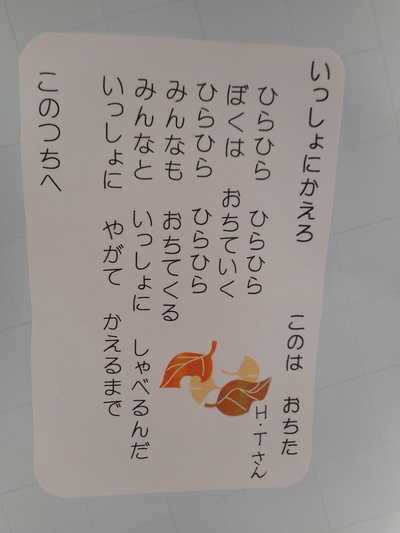 いっしょにかえろ
このは おちた
H・Tさん
ひらひら ひらひら
ぼくは おちていく
ひらひら ひらひら
みんなも おちてくる
みんなと いっしょに しゃべるんだ
いっしょに やがて かえるまで
このつちへ